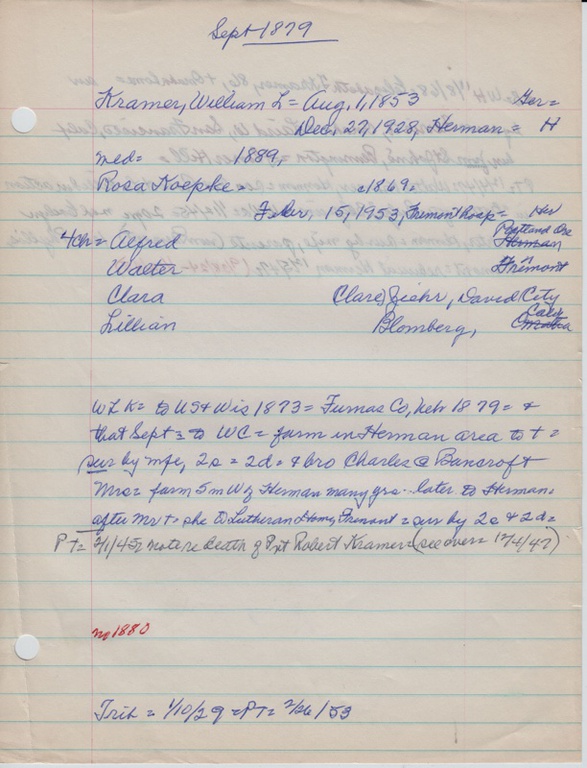 Sept 1879
Kramer, William L = Aug, 1, 1853 Ger =
Dec, 27, 1928, Herman = H
med = 1889,
Rosa Koepke = c1869 =
Febr, 15, 1953, Fremont hosp = Her
4 ch = Alfred Portland Ore
Herman
Walter "
Fremont
Clara Clare) Ziehr, David City
Lillian Blomberg, Calif
Omaha
W L K = to US & Wis 1873 = Furnas Co, Neb 1879 = &
that Sept = to WC = farm in Herman area to t =
sur by wife, 2s = 2d = & bro Charles @ Bancroft
Mrs = farm 5 m W of Herman many yrs - later to Herman =
after Mr t = she to Lutheran Home, Fremont = sur by 2s & 2d =
PT = 2/1/45 note re death of Pvt Robert Kramer = (see over = 12/4/47)
no 1880
Trib = 1/10/29 = PT = 2/26/53